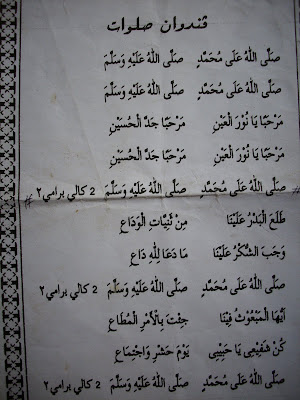 ڤندوان صلوات
صَلَّى اللهُ عَلَى مُحَمَّدٍ صَلَّى اللهُ عَلَيْهِ وَسَلَّمَ
صَلَّى اللهُ عَلَى مُحَمَّدٍ صَلَّى اللهُ عَلَيْهِ وَسَلَّمَ
مَرْحَبًا يَا نُوْرَ الْعَيْنِ مَرْحَبًا جَدَّ الْحُسَيْنِ
مَرْحَبًا يَا نُوْرَ الْعَيْنِ مَرْحَبًا جَدَّ الْحُسَيْنِ
# صَلَّى اللهُ عَلَى مُحَمَّدٍ صَلَّى اللهُ عَلَيْهِ وَسَلَّمَ 2 كالي برامي٢ #
طَلَعَ الْبَدْرُ عَلَيْنَا مِنْ ثَنِيَّاتِ الْوَدَاعِ
وَجَبَ الشُّكْرُ عَلَيْنَا مَا دَعَا لِلّٰهِ دَاعِ
صَلَّى اللهُ عَلَى مُحَمَّدٍ صَلَّى اللهُ عَلَيْهِ وَسَلَّمَ 2 كالي برامي٢
اَيُّهَا الْمَبْعُوْثُ فِيْنَا جِئْتَ بِالْاَمْرِ الْمُطَاعِ
كُنْ شَفِيْعِى يَا حَبِيْبِى يَوْمَ حَشْرٍ وَاجْتِمَاعِ
صَلَّى اللهُ عَلَى مُحَمَّدٍ صَلَّى اللهُ عَلَيْهِ وَسَلَّمَ 2 كالي برامي٢